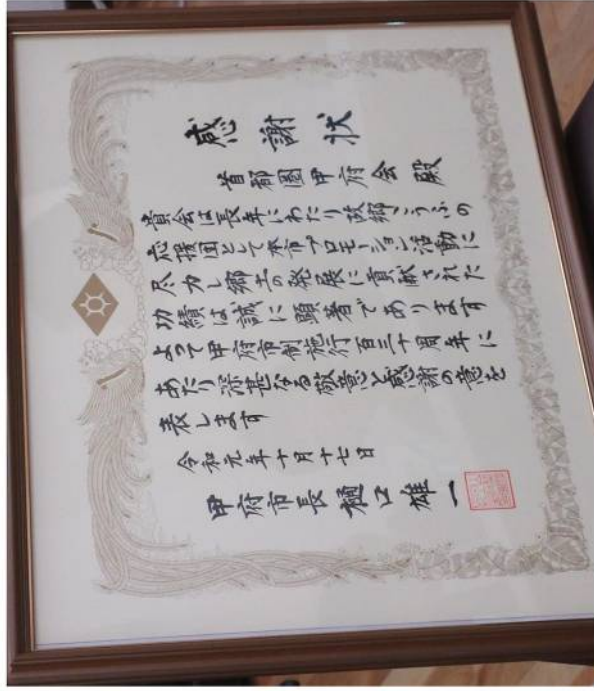 感謝状
首都圏甲府会殿
貴会は長年にわたり故郷こうふの
応援団として本市プロモーション活動に
尽力し郷土の発展に貢献された
功績は誠に顕著であります
よって甲府市制施行百三十周年に
あたり深甚なる敬意と感謝の意を
表します
令和元年十月十七日
甲府市長樋口雄一